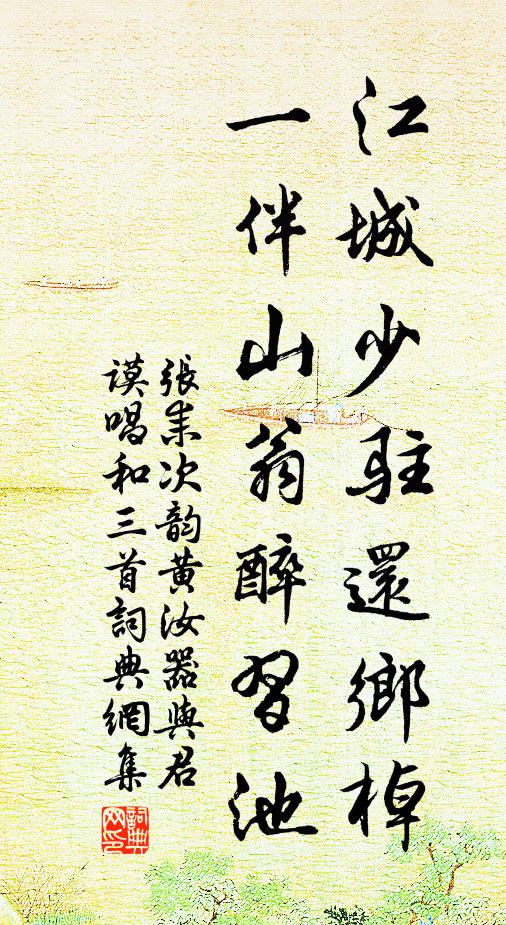 江城少駐還鄉棹
一伴山翁醉習池
張耒次韵黃汝器與君
謨唱和三首詞典網集
詞典
网印